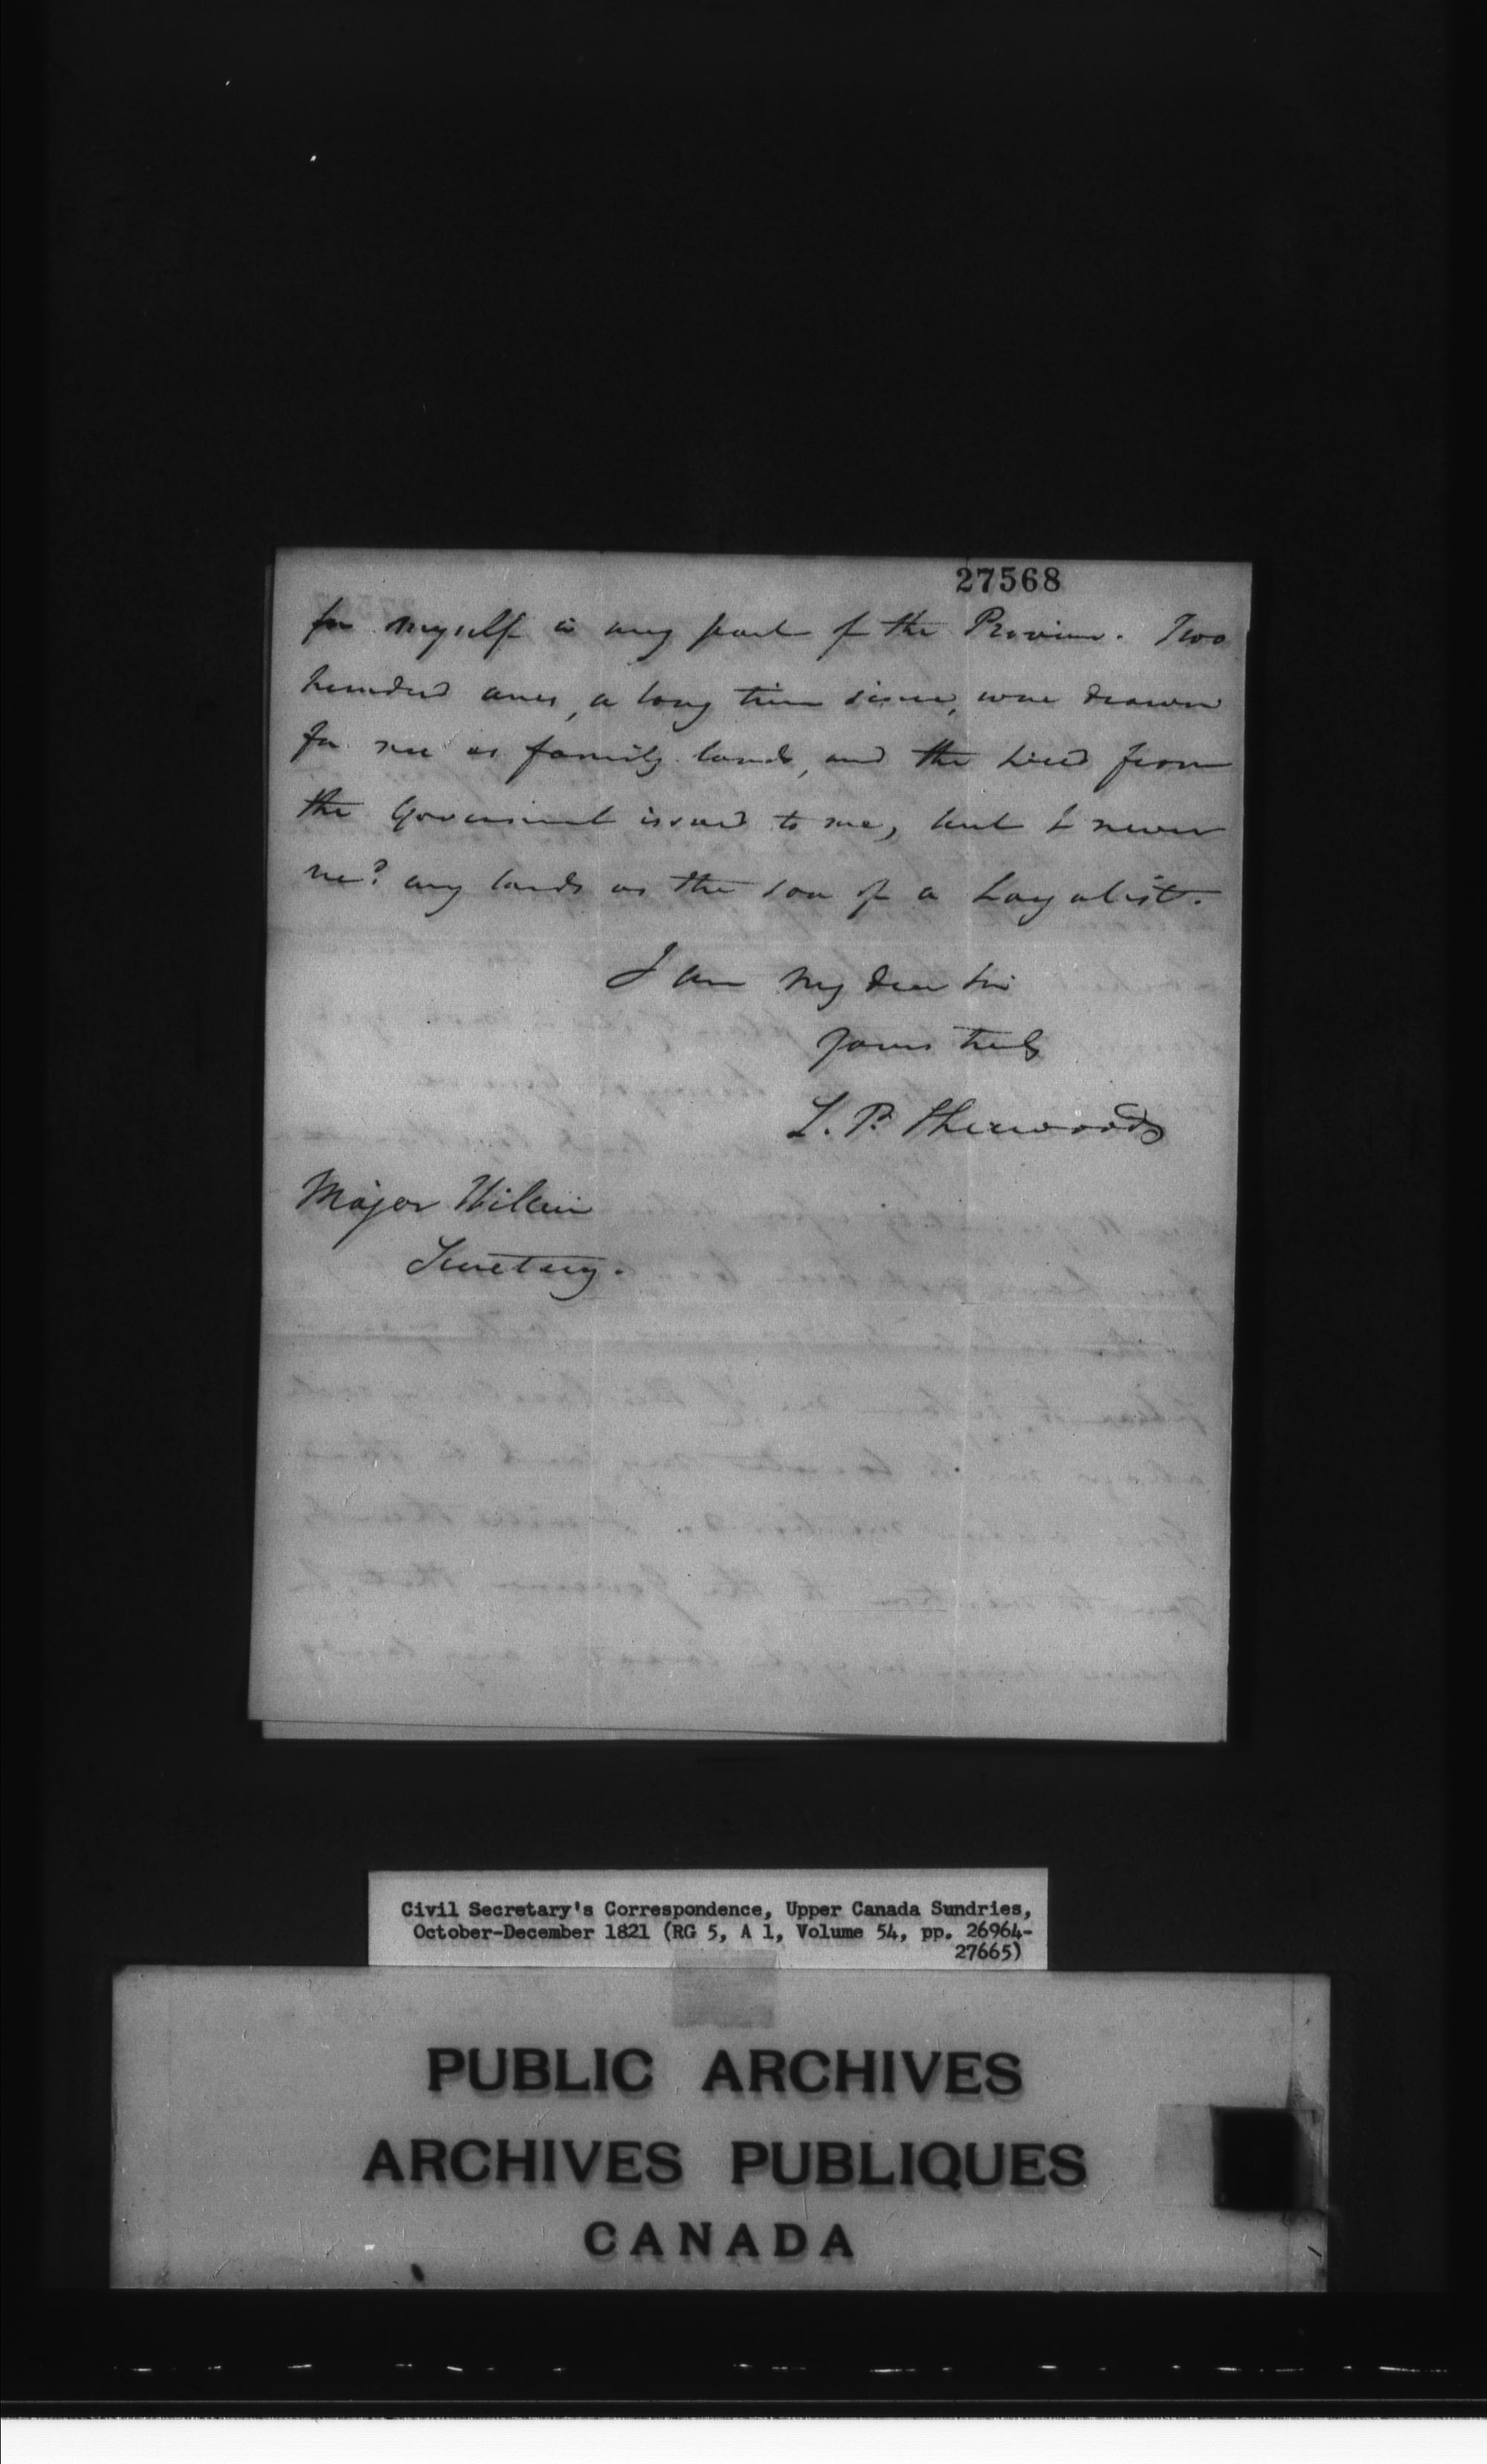 27568
for myself in any part of the Province. Two
hundred acres, a long time since, were drawn
for me as family lands, and the deed from
the Government issued to me, but I never
rec'd any lands as the son of a Loyalist.
I am my dear Sir
Yours truly
L. P. Sherwood
Major Hillier
Secretary.
Civil Secretary's Correspondence, Upper Canada Sundries,
October-December 1821 (RG 5, A 1, Volume 54, pp. 26964-
27665)
PUBLIC ARCHIVES
ARCHIVES PUBLIQUES
CANADA